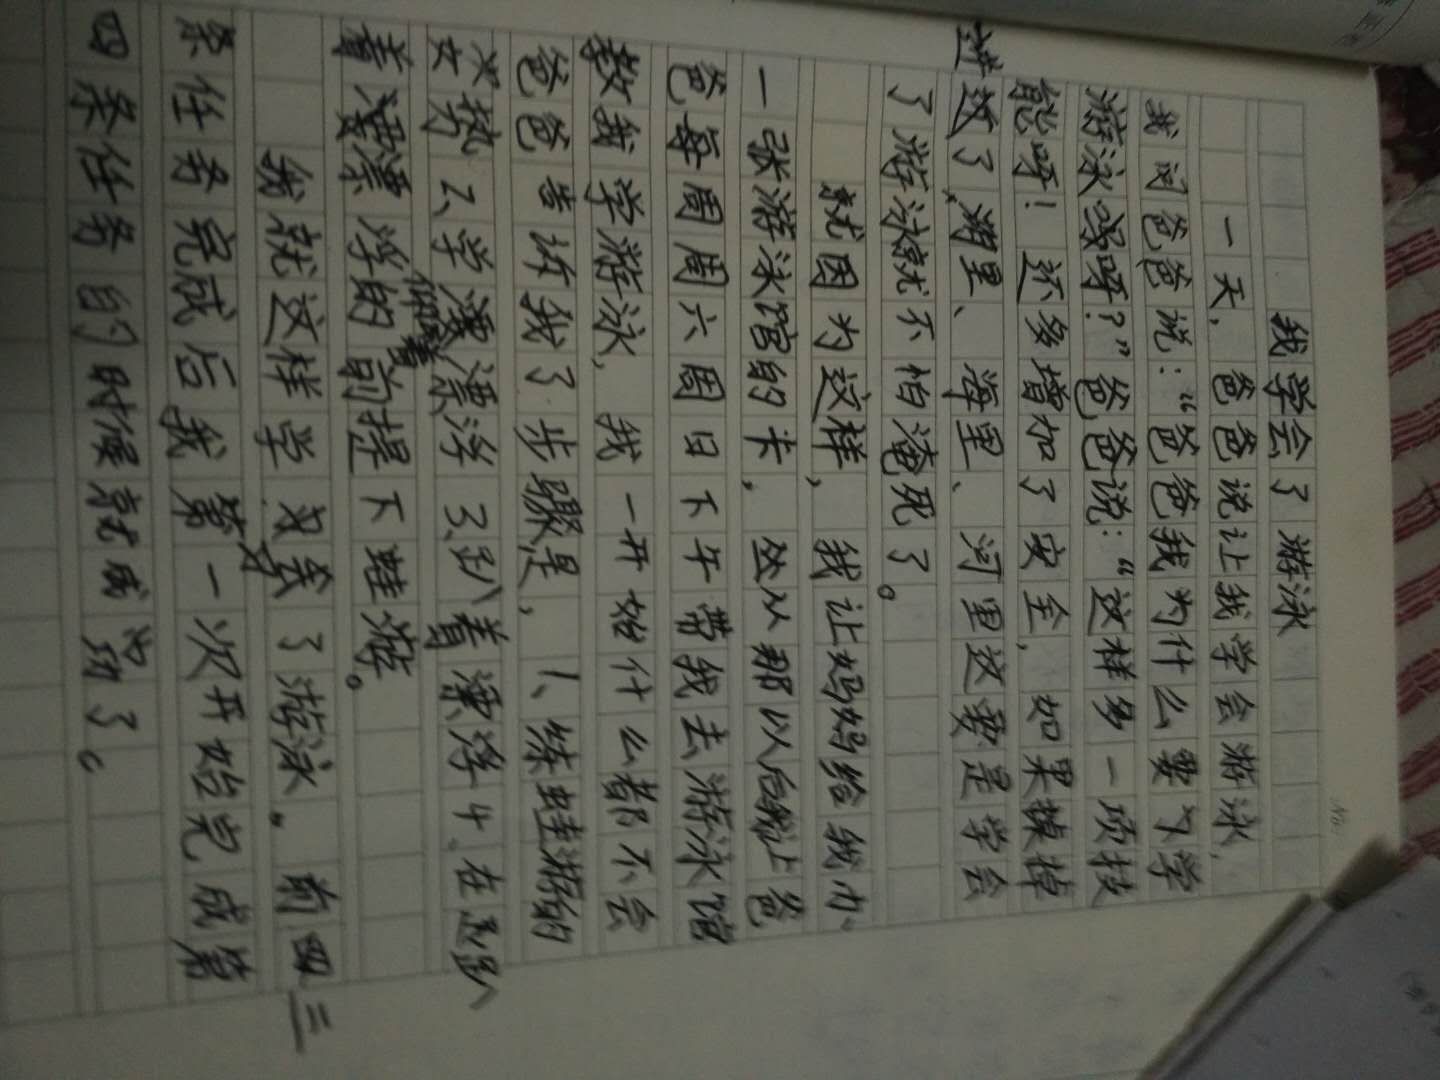 我学会了游泳
一天，爸爸说让我学会游泳，
我问爸爸说：“爸爸我为什么要学
游泳呀？”爸爸说：“这样多一项技
能呀！还多增加了安全，如果掉
进了湖里、海里、河里这要是学会
了游泳就不怕淹死了。
就因为这样，我让妈妈给我办
一张游泳馆的卡，从那以后就让爸
爸每周周六周日下午带我去游泳馆
教我学游泳，我一开始什么都不会
爸爸告诉我了步骤是，1、练蛙游的
姿势2、学仰着漂浮3、趴着漂浮4、在
着漂浮的前提下蛙游。
我就这样学会了游泳。前三
条任务完成后我第一次开始完成第
四条任务的时候就成功了。